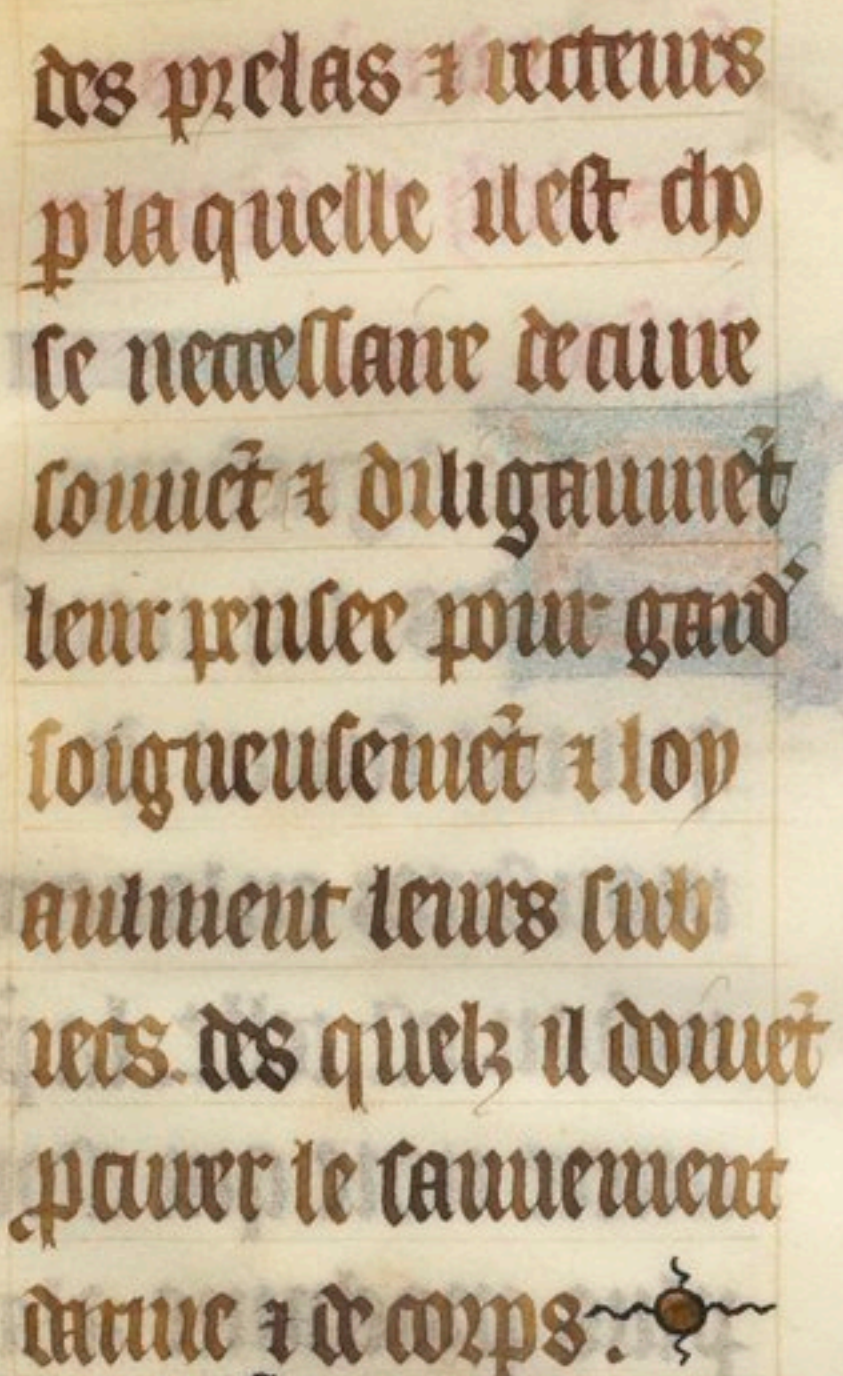 des prelas ⁊ recteurs
ꝑ la quelle il est cho
se neccessaire de cuire
souuẽt ⁊ diligaumẽt
leur pensee pour gard᾽
soigneusemẽt ⁊ loy
aulment leurs sub
iects. des quelz il doiuẽt
ꝓcurer le sauuement
dame ⁊ de corps.